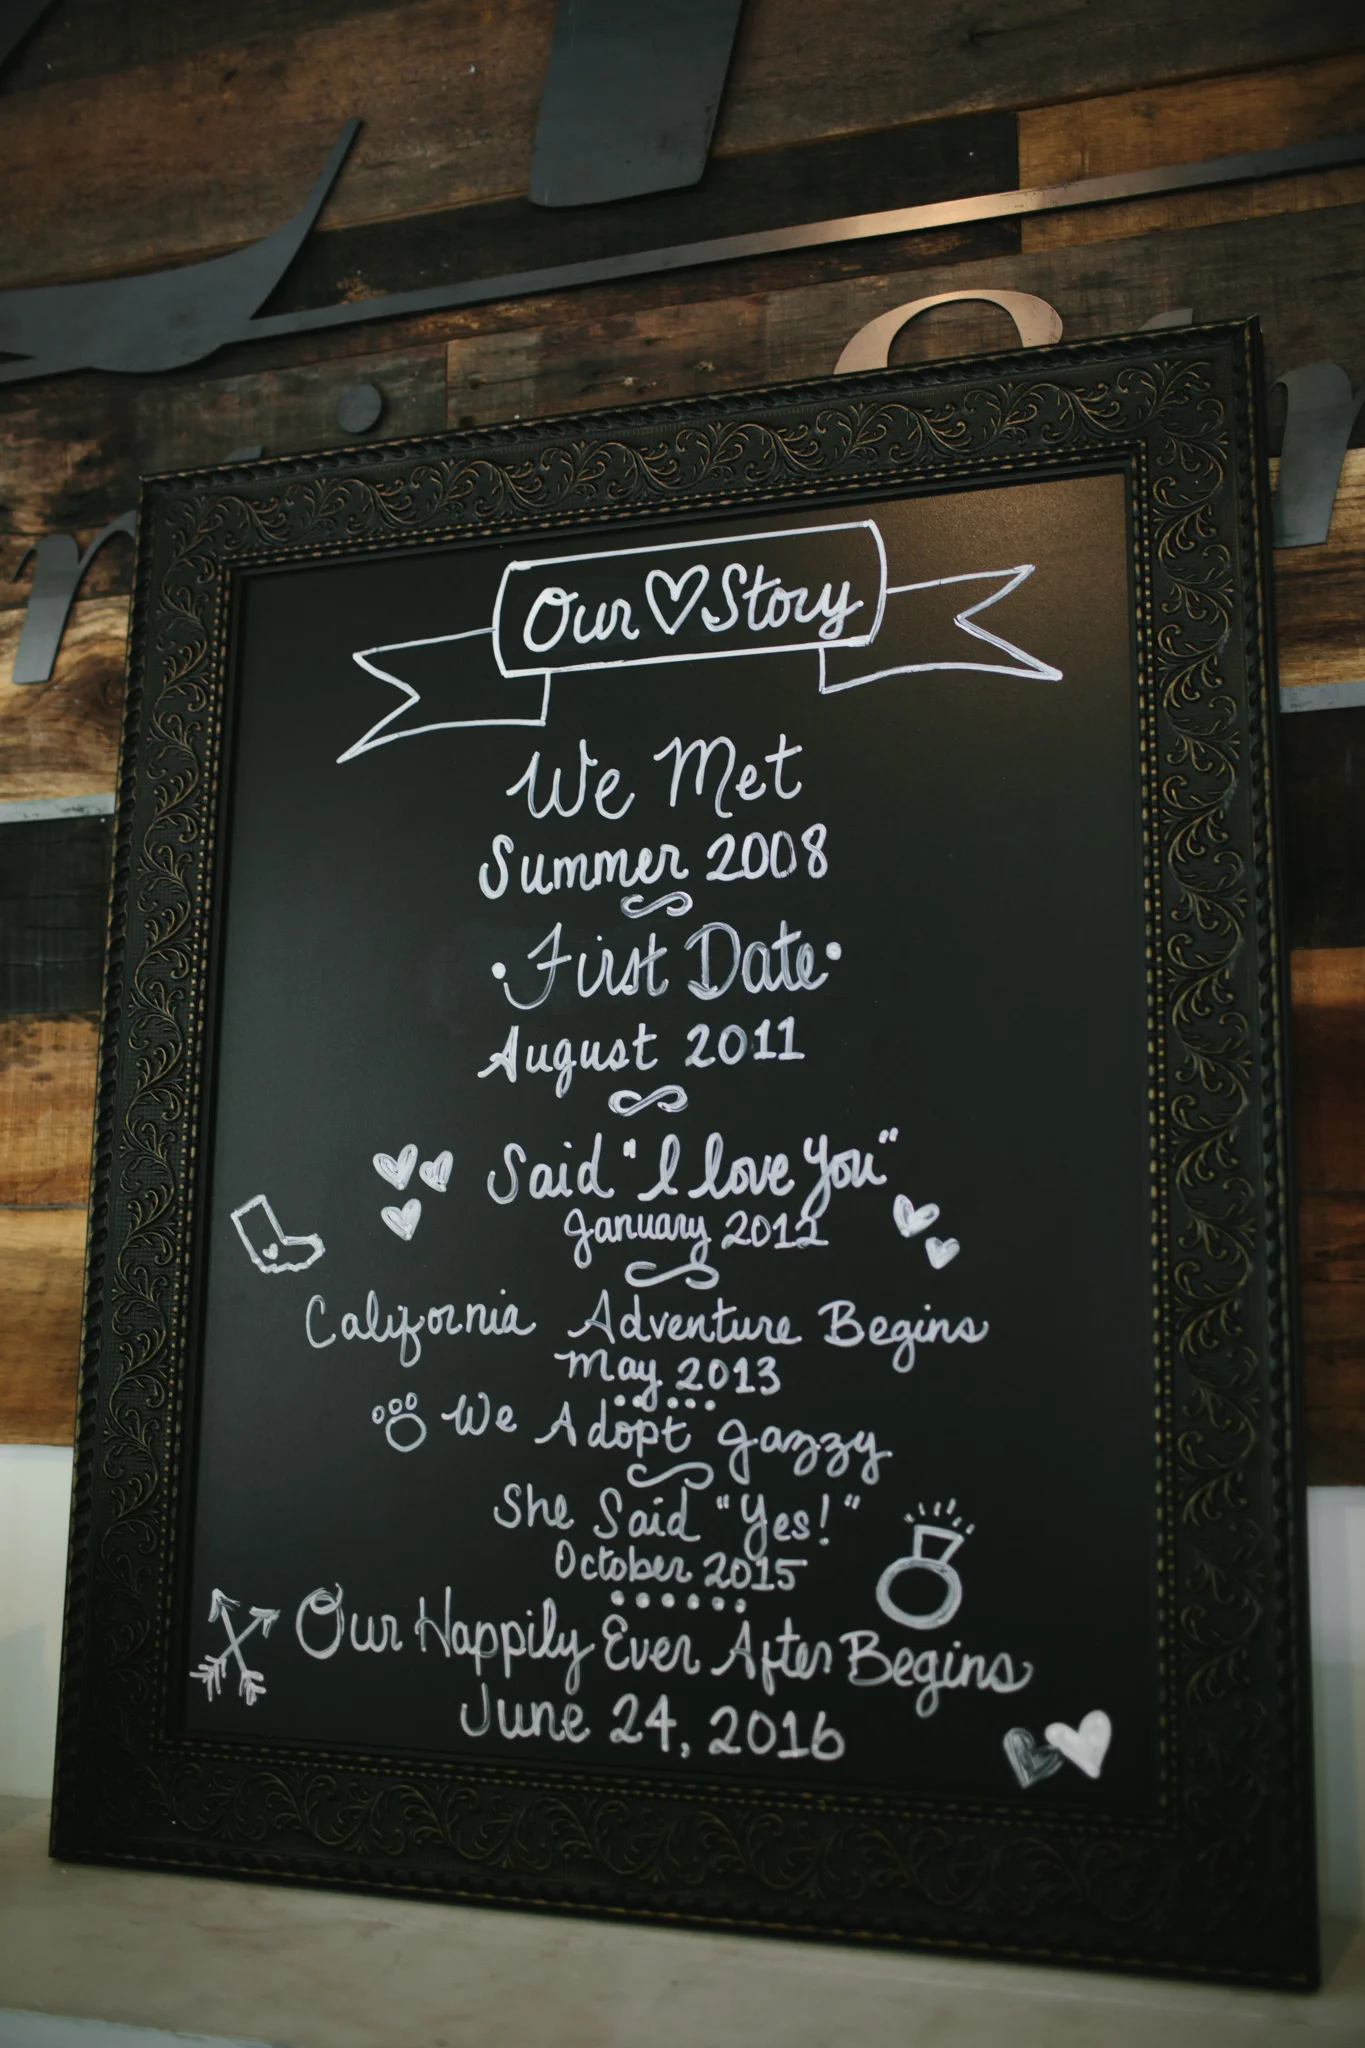 Our Story
We Met
Summer 2008
First Date
August 2011
Said "I love you"
January 2012
California Adventure Begins
May 2013
We Adopt Jazzy
She Said "Yes!"
October 2015
Our Happily Ever After Begins
June 24, 2016